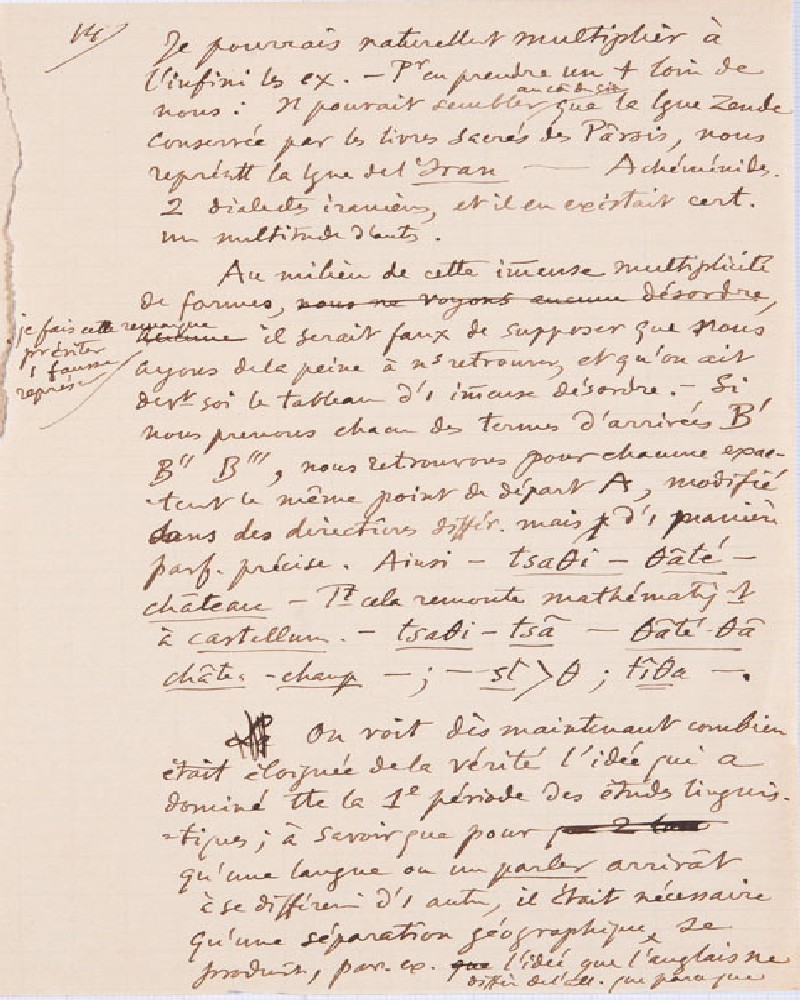 14)
Je pourrais naturellnt multiplier à
l'infini les ex. — Pr en prendre un + loin de
nous : Il pourrait sembler que la lgue Zende
conservée par les livres sacrés des Pârsis, nous
représtt la lgue de l'Iran — Achéménides.
2 dialectes iraniens, et il en existait cert.
un multitude d'auts.
Au milieu de cette imense multiplicité
de formes, nous ne voyons aucune désordre,
je fais cette remarque
préviter
1 fausse
représ
aucune il serait faux de supposer que nous
ayons de la peine à ns retrouver, et qu'on ait
devt soi le tableau d'1 imense désordre. — Si
nous prenons chacun des termes d'arrivées B'
B'' B''', nous retrouvons pour chacune exac-
-tent le même point de départ A, modifié
dans des directions différ. mais d'1 manière
parf. précise. Ainsi — tsaθi — θâté —
château — Tt cela remonte mathématiqt
à castellum. — tsaθi - tsã — θâté - θã
château - champ — ; — st > θ ; tîθa —.
On voit dès maintenant combien
était éloignée de la vérité l'idée qui a
dominé tte la 1e période des études linguis-
-tiques ; à savoir que pour
qu'une langue ou un parler arrivât
à se différen d'1 autre, il était nécessaire
qu'une séparation géographique se
produisit, par. ex. que l'idée que l'anglais ne
diffère de l'all. que parce que